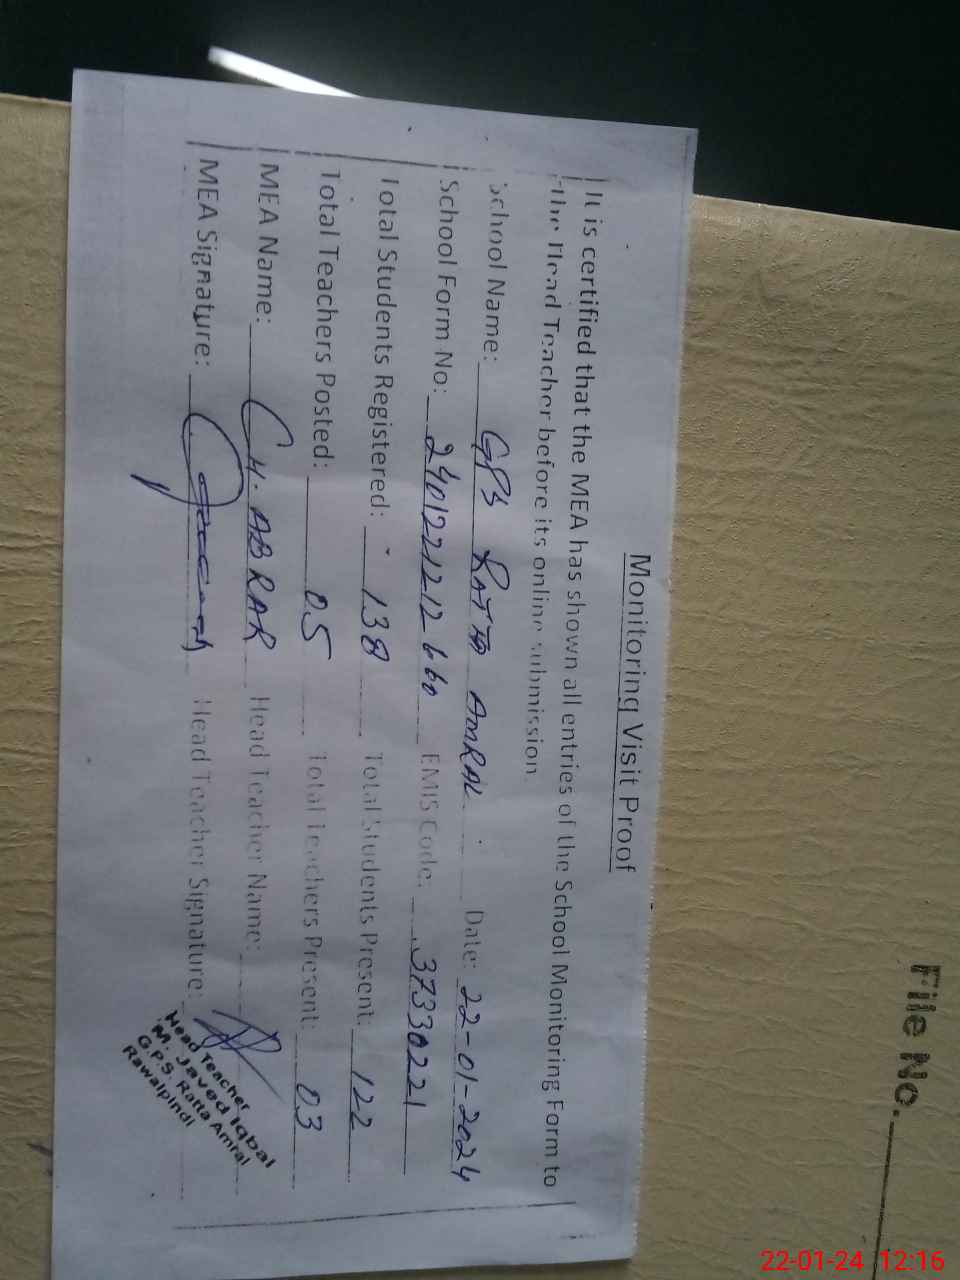 Monitoring Visit Proof
It is certified that the MEA has shown all entries of the School Monitoring Form to
the Head Teacher before its online submission.
School Name: GPS RATTA AMRAL Date: 22-01-2024
School Form No: 2401221212660 EMIS Code: 37330221
Total Students Registered: 138 Total Students Present: 122
Total Teachers Posted: 05 Total Teachers Present: 03
MEA Name: CH. ABRAR Head Teacher Name:
MEA Signature: Head Teacher Signature:
Head Teacher
M. Javed Iqbal
G.P.S. Ratta Amral
Rawalpindi
File No.
22-01-24 12:16